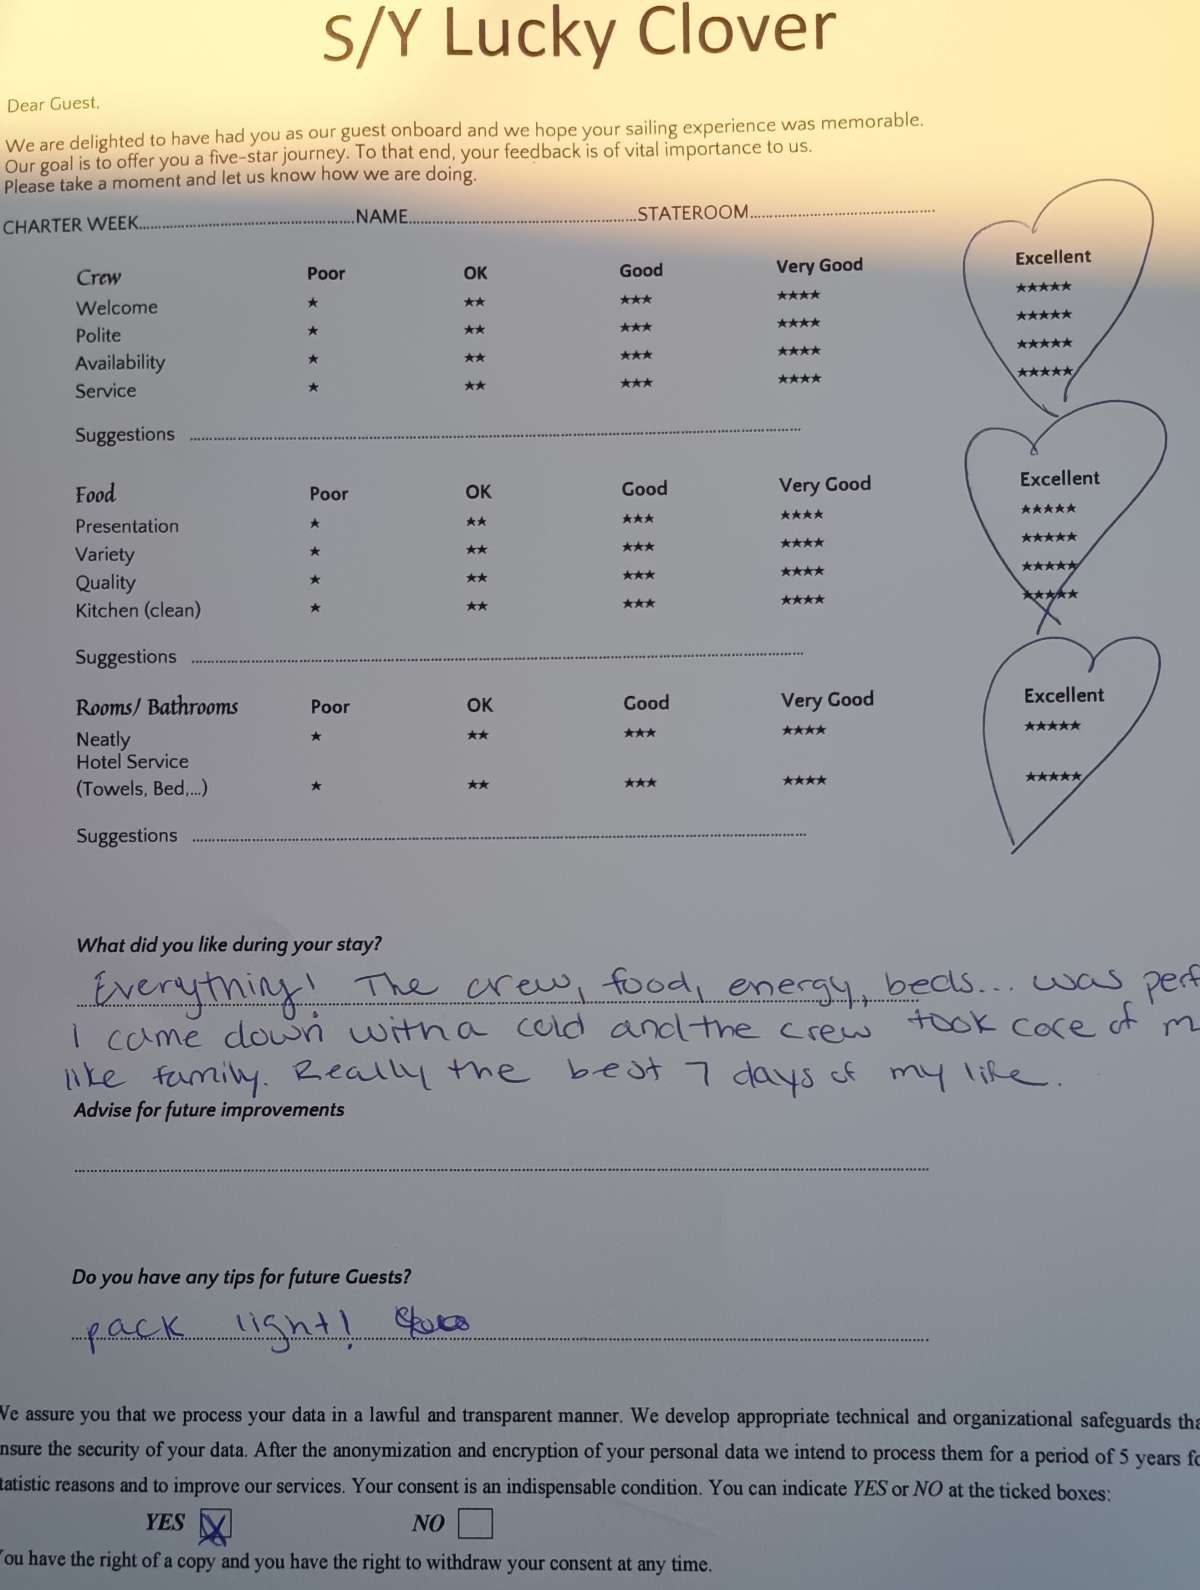 S/Y Lucky Clover
Dear Guest,
We are delighted to have had you as our guest onboard and we hope your sailing experience was memorable.
Our goal is to offer you a five-star journey. To that end, your feedback is of vital importance to us.
Please take a moment and let us know how we are doing.
CHARTER WEEK..........NAME..........STATEROOM..........
Crew Poor OK Good Very Good Excellent
Welcome ★ ★★ ★★★ ★★★★ ★★★★★
Polite ★ ★★ ★★★ ★★★★ ★★★★★
Availability ★ ★★ ★★★ ★★★★ ★★★★★
Service ★ ★★ ★★★ ★★★★ ★★★★★
Suggestions ..........
Food Poor OK Good Very Good Excellent
Presentation ★ ★★ ★★★ ★★★★ ★★★★★
Variety ★ ★★ ★★★ ★★★★ ★★★★★
Quality ★ ★★ ★★★ ★★★★ ★★★★★
Kitchen (clean) ★ ★★ ★★★ ★★★★ ★★★★★
Suggestions ..........
Rooms/ Bathrooms Poor OK Good Very Good Excellent
Neatly ★ ★★ ★★★ ★★★★ ★★★★★
Hotel Service
(Towels, Bed,...) ★ ★★ ★★★ ★★★★ ★★★★★
Suggestions ..........
What did you like during your stay?
Everything! The crew, food, energy, beds... was perf
I came down with a cold and the crew took care of m
like family. Really the best 7 days of my life.
Advise for future improvements
Do you have any tips for future Guests?
pack light!
We assure you that we process your data in a lawful and transparent manner. We develop appropriate technical and organizational safeguards tha
nsure the security of your data. After the anonymization and encryption of your personal data we intend to process them for a period of 5 years fo
tatistic reasons and to improve our services. Your consent is an indispensable condition. You can indicate YES or NO at the ticked boxes:
YES NO
You have the right of a copy and you have the right to withdraw your consent at any time.